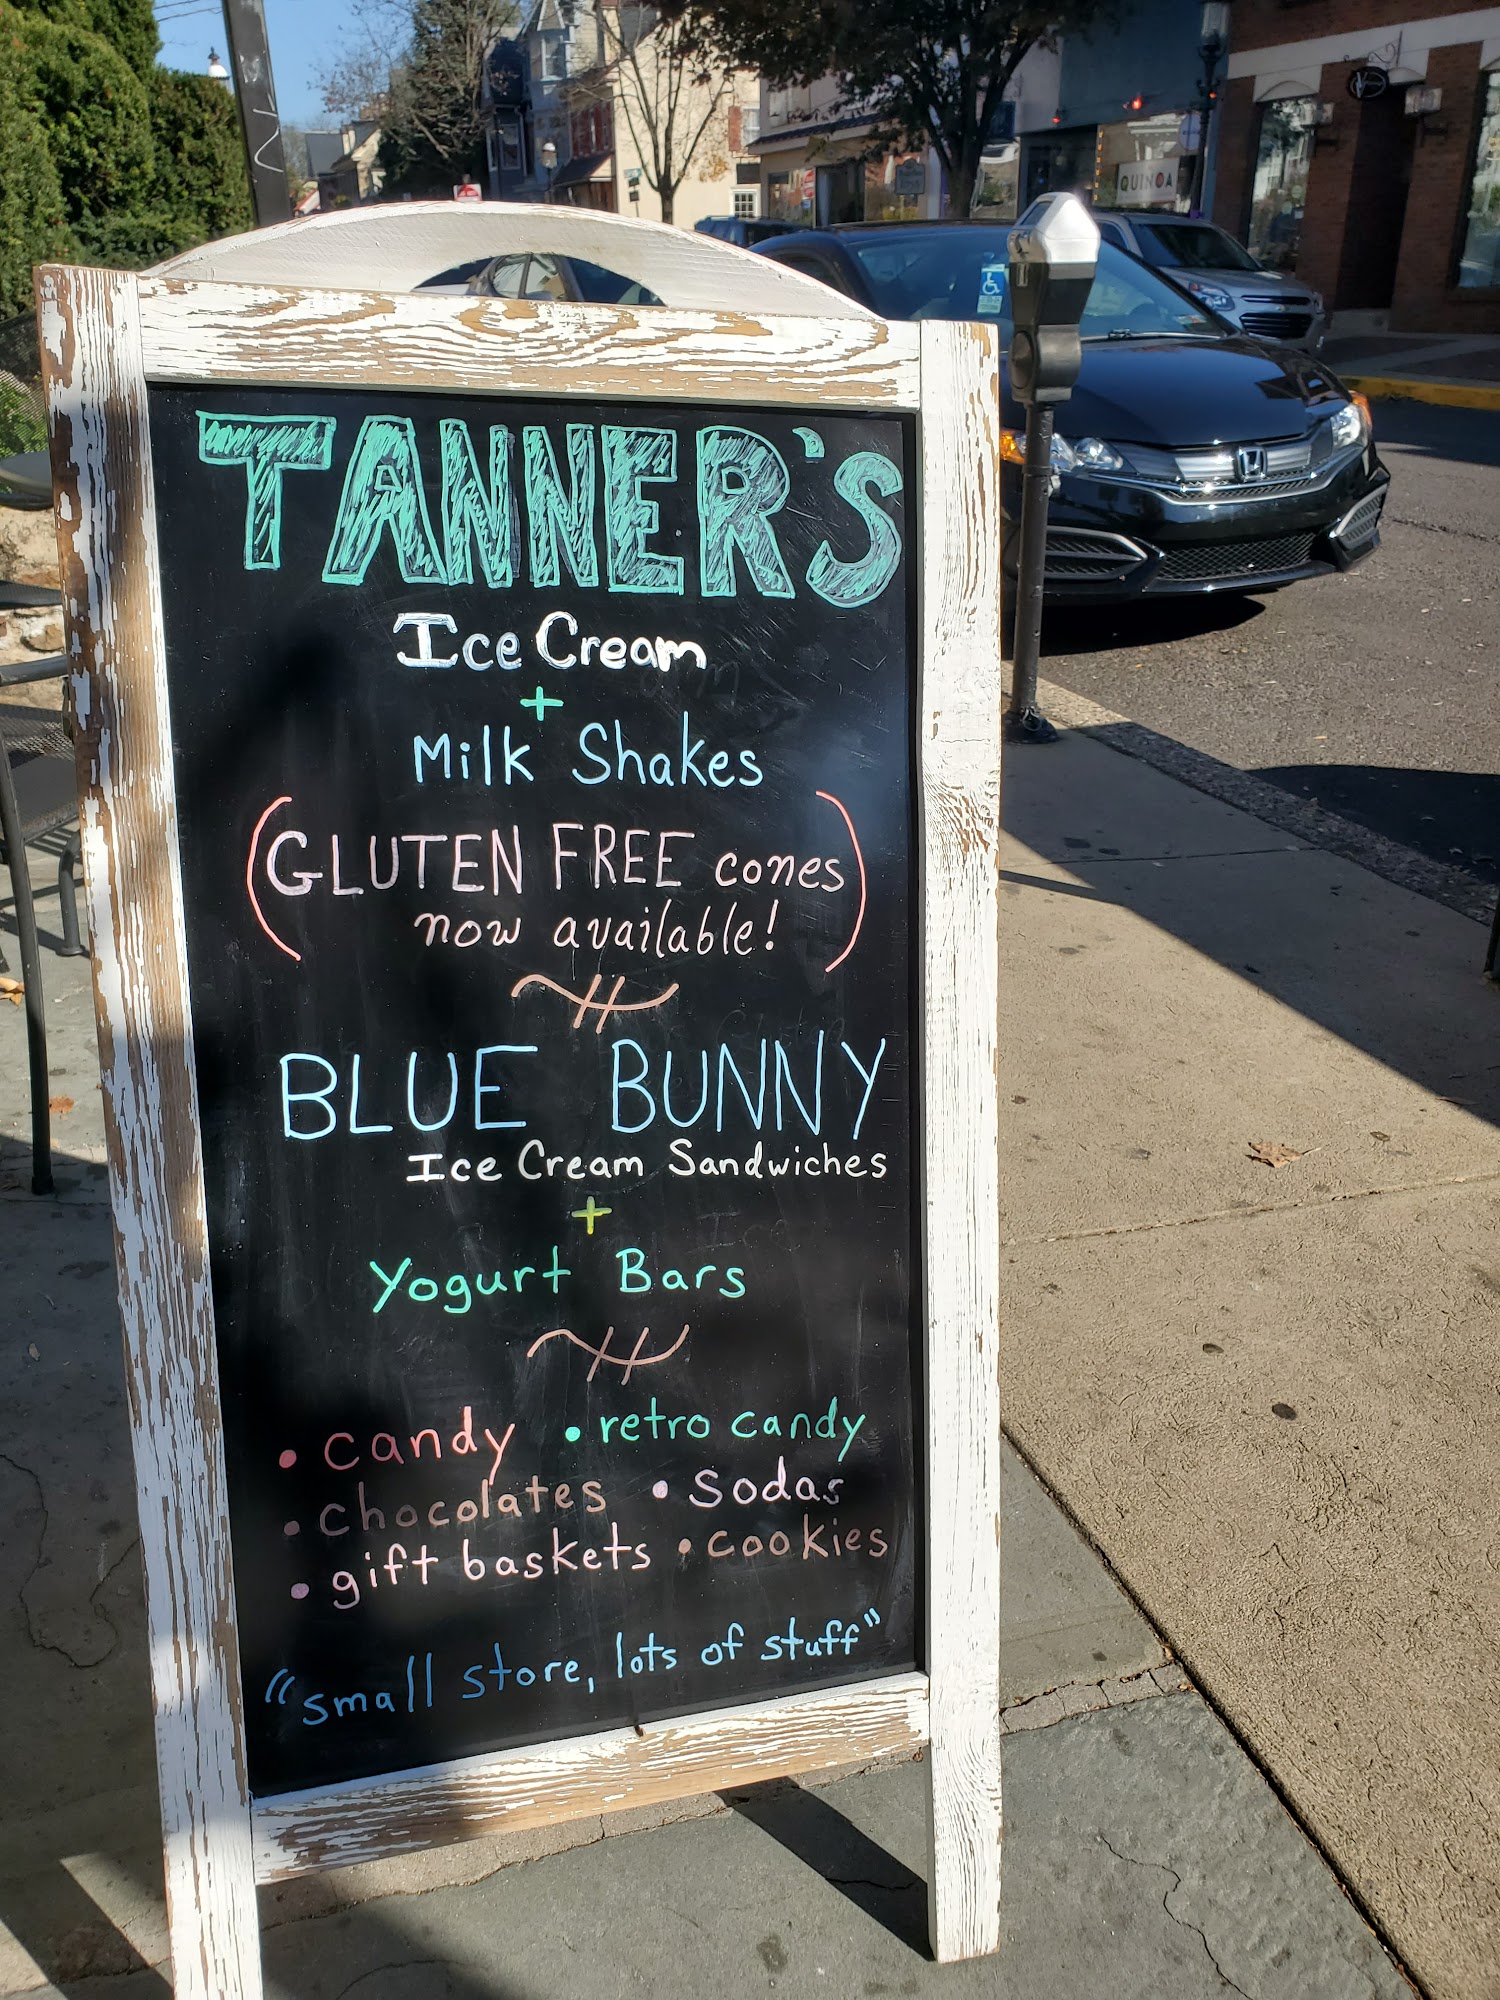 TANNER'S
Ice Cream
+
Milk Shakes
(GLUTEN FREE cones
now available!)
BLUE BUNNY
Ice Cream Sandwiches
+
Yogurt Bars
• candy • retro candy
• chocolates • sodas
• gift baskets • cookies
"small store, lots of stuff"
QUINOA